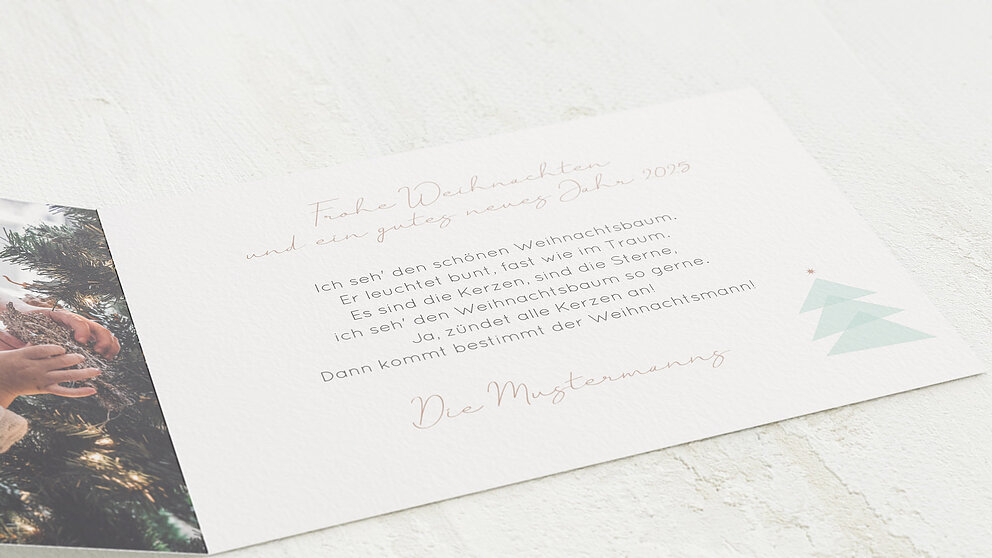 Frohe Weihnachten
und ein gutes neues Jahr 2025
Ich seh' den schönen Weihnachtsbaum.
Er leuchtet bunt, fast wie im Traum.
Es sind die Kerzen, sind die Sterne,
ich seh' den Weihnachtsbaum so gerne.
Ja, zündet alle Kerzen an!
Dann kommt bestimmt der Weihnachtsmann!
Die Mustermanns